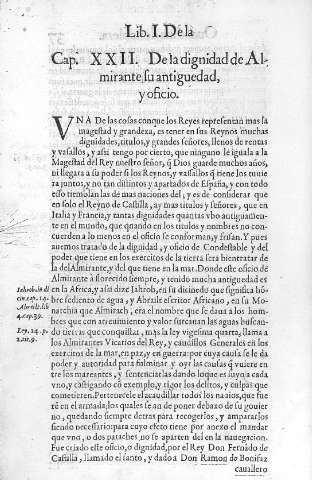 Lib. I. De la
Cap. XXII. De la dignidad de Al-
mirante, su antiguedad,
y oficio.
VNA De las cosas con que los Reyes representan mas la
magestad y grandeza, es tener en sus Reynos muchas
dignidades, titulos, y grandes señores, llenos de rentas
y vasallos, y assi tengo por cierto, que ninguno le iguala a la
Magestad del Rey nuestro señor, q̃ Dios guarde muchos años,
ni llegara a su poder si los Reynos, y vasallos q̃ tiene los tuuie
ra juntos, y no tan distintos y apartados de España, y con todo
esso tiemblan las de mas naciones del, y es de considerar que
en solo el Reyno de Castilla, ay mas titulos y señores, que en
Italia y Francia, y tantas dignidades quantas vbo antiguamen-
te en el mundo, que quando en los titulos y nombres no con-
cuerden a lo menos en el oficio se conforman, y frisan. Y pues
auemos tratado de la dignidad, y oficio de Condestable y del
poder que tiene en los exercitos de la tierra sera bien tratar de
la del Almirante, y del que tiene en la mar. Donde este oficio de
Almirante à florecido siempre, y tenido mucha antiguedad es
en la Africa, y assi dize Iahob, en su dicinedo que significa hõ-
bre sediento de agua, y Abraile escritor Africano, en su Mo-
narchia que Almirach, era el nombre que se daua a los hom-
bres que con atreuimiento y valor surcauan las aguas buscan-
do tierras que conquistar, mas la ley vigesima quarta, llama a
los Almirantes Vicarios del Rey, y caudillos Generales en los
exercitos de la mar, en paz, y en guerra: por cuya causa se le da
poder y autoridad para fulminar y oyr las causas q̃ vuiere en
tre los mareantes, y sentenciarlas dando loque es suyo a cada
vno, y castigando cõ exemplo, y rigor los delitos, y culpas que
cometieren. Pertenecele el acaudillar todos los nauios, que fue
rẽ en el armada, los quales se an de poner debaxo de su gouier
no, quedando siempre detras para recogerlos, y ampararlos
siendo necessario: para cuyo efeto tiene por anexo el mandar
que vno, o dos pataches no se aparten del en la nauegacion.
Fue criado este oficio, y dignidad, por el Rey Don Fernãdo de
Castilla, llamado el santo, y dado a Don Ramon de Bonifaz
cauallero
Ley. 24. p.